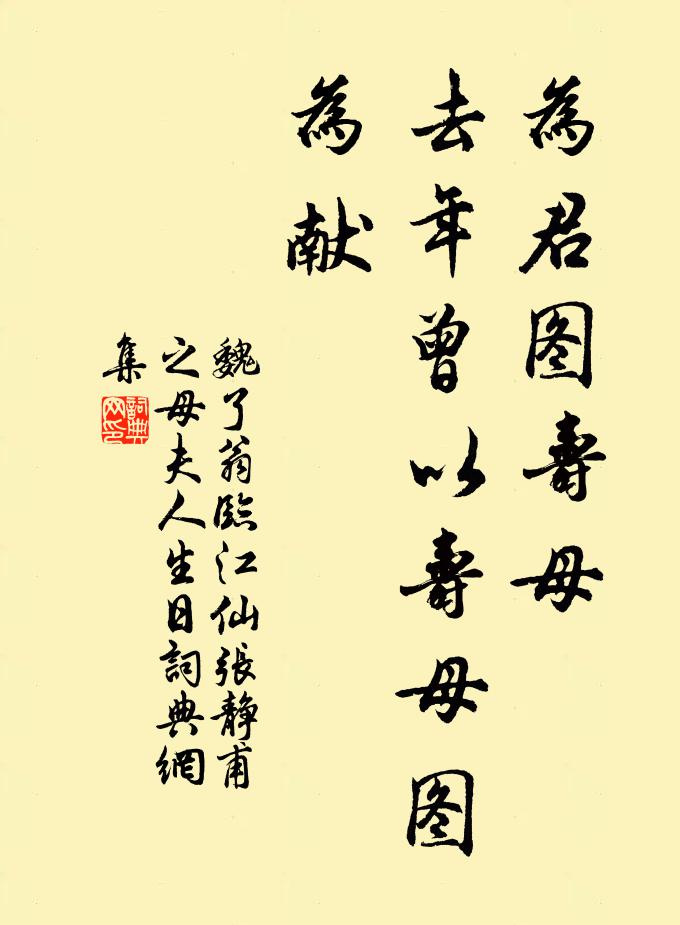 為君图壽母
去年曾以壽母图
為献
魏了翁臨江仙張静甫
之母夫人生日詞典網
集
詞典
网印